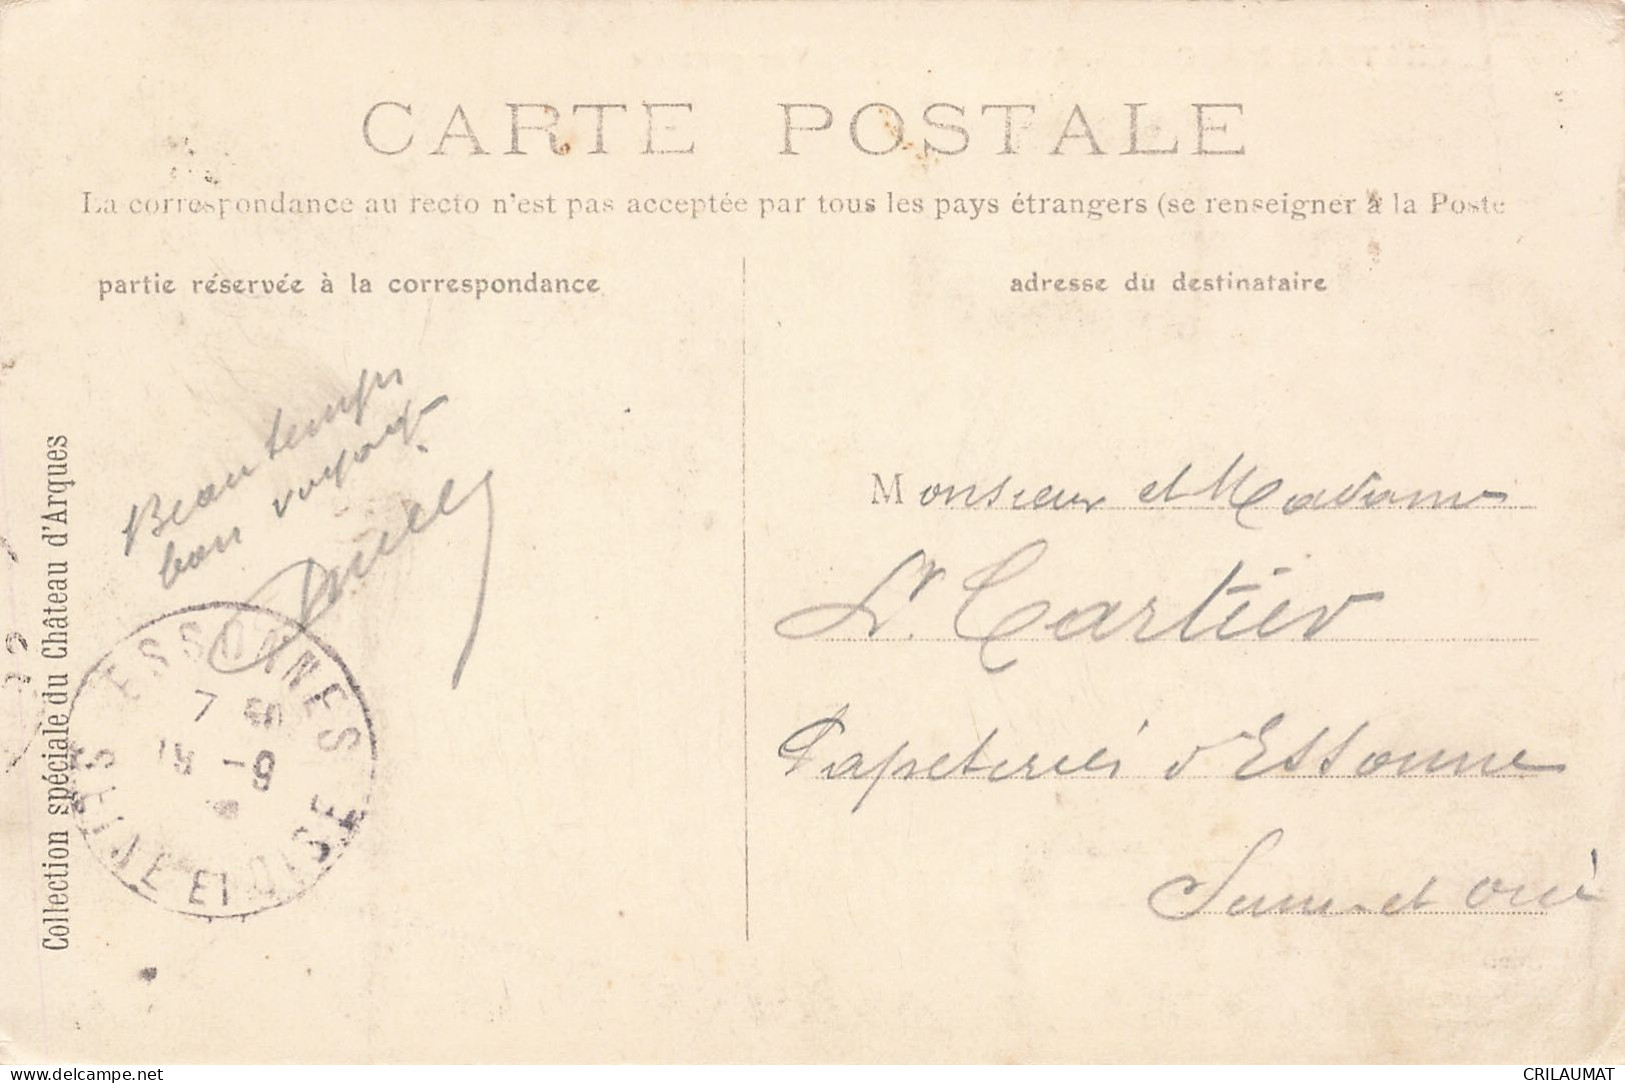 CARTE POSTALE
La correspondance au recto n'est pas acceptée par tous les pays étrangers (se renseigner à la Poste
partie réservée à la correspondance
adresse du destinataire
Beau temps
bon voyage
Monsieur et Madame
Lr. Cartier
Papeteries d'Essonne
Seine-et-Oise
Collection spéciale du Château d'Arques
ESSONNES
7
18 -9
SEINE ET OISE
www.delcampe.net
CRILAUMAT